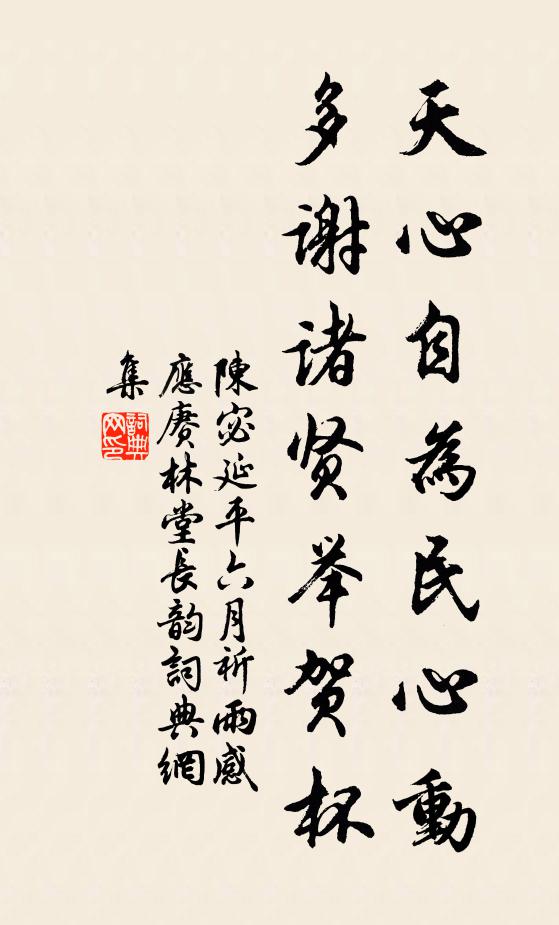 天心自為民心動
多谢诸贤举贺杯
陳宓延平六月祈雨感
應賡林堂長韵詞典網
集
詞典
网印